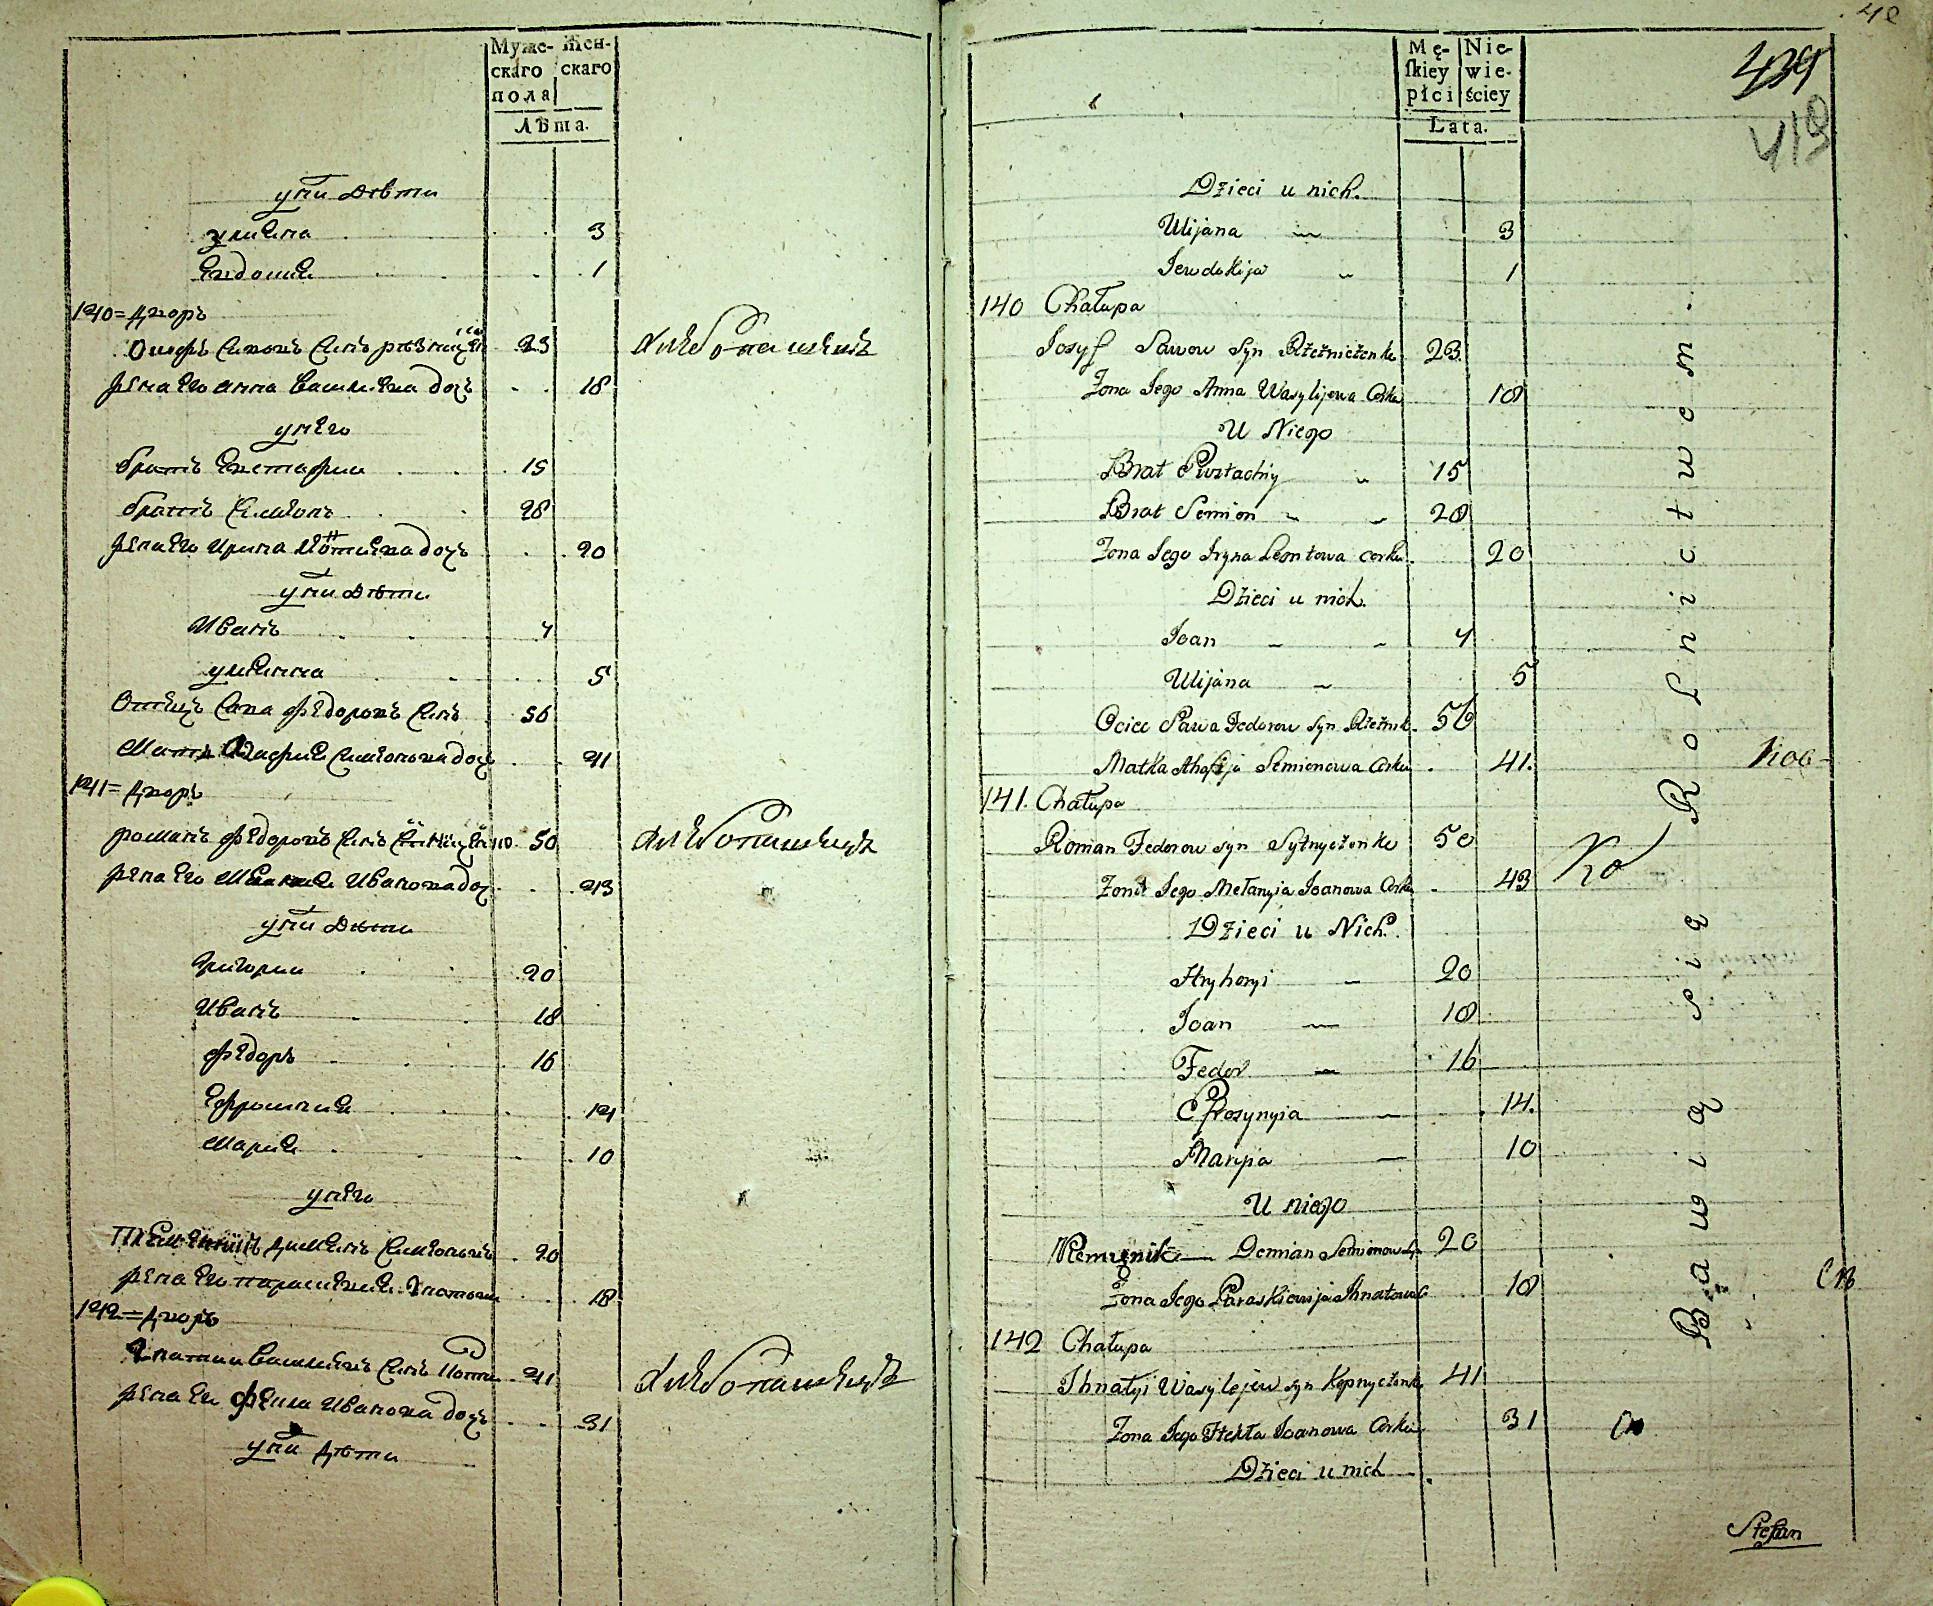 Муже- Жен-
скаго скаго
пола
Лѣта.
у них дѣти
улияна 3
Евдокия 1
140 = дворъ
Осифъ Савовъ синъ 23 хлебопашецъ
жена его анна василиева дочъ 18
у него
братъ Евстафии 15
братъ Симеонъ 28
жена его ирина дочъ 20
у них дѣти
Иванъ 4
улианна 5
Отецъ Сава федоровъ синъ 56
Мать Симеонова дочъ 41
141 = дворъ
романъ федоровъ синъ 50 хлебопашецъ
жена его Мелания Иванова доч 43
у них дѣти
григории 20
Иванъ 18
федоръ 16
Ефросиния 14
Мария 10
у него
племенникъ димянъ Симеоновъ 20
жена его параскевия 18
142 = дворъ
игнатии василиевъ синъ 41 хлебопашецъ
жена его фекла Иванова дочъ 31
у них дѣти
Mę- Nie-
skiey wie-
płci ściey
Lata.
439
419
Dzieci u nich.
Ulijana 3
Jewdokija 1
140 Chałupa
Josyf Sawow syn Rżeżniczenko 23.
Żona Jego Anna Wasylijowa Corka 18
U Niego
Brat Ewstachiy 15
Brat Semion 28
Żona Jego Iryna Leontowa corka 20
Dzieci u nich.
Joan 4
Ulijana 5
Ociec Sawa Fedorow syn Rżeżnik. 56
Matka Ahafija Semionowa Corka 41.
141. Chałupa
Roman Fedorow syn Sytnyczenko 50
Żona Jego Mełanyia Joanowa Corka 43
Dzieci u Nich.
Hryhoryi 20
Joan 18
Fedor 16
Efrosynyia 14.
Maryia 10
U niego
Plemięnik Demian Semionow syn 20
Żona Jego Paraskiewija Ihnatowa 18
142 Chałupa
Ihnatyi Wasylejew syn Kopnyczenko 41
Żona Jego Ftekła Joanowa Corka 31
Dzieci u nich
Bawią się Rolnictwem.
Stefan